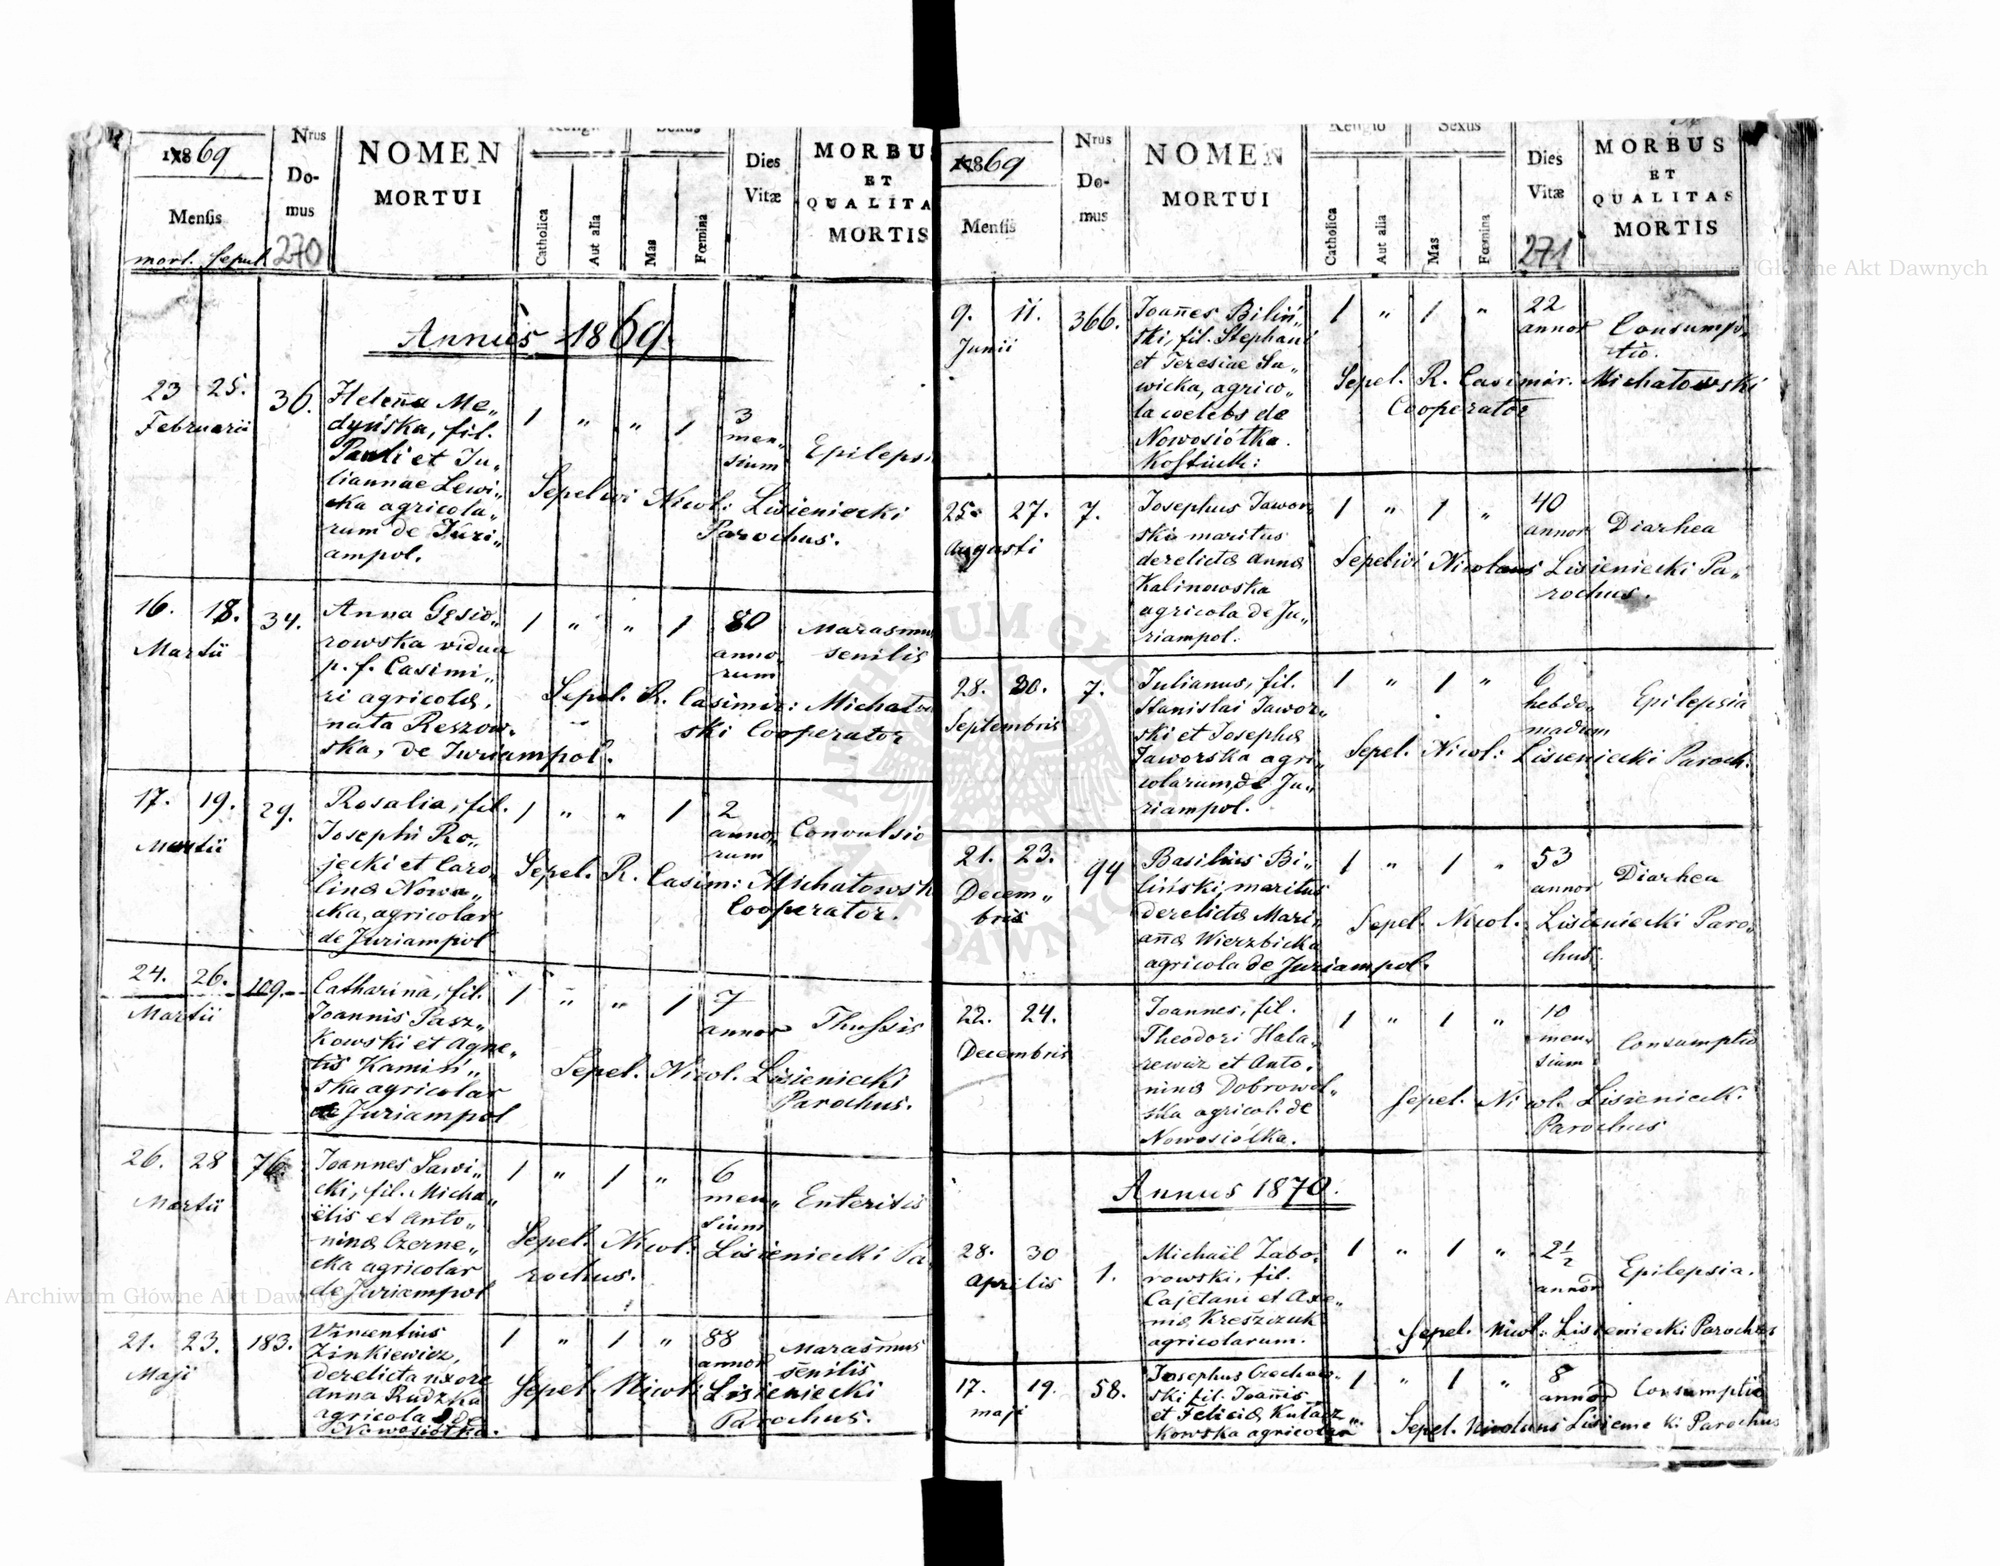 1869
Nrus
Do-
mus
270
NOMEN
MORTUI
Religio
Sexus
Catholica
Aut alia
Mas
Fœmina
Dies
Vitæ
MORBU
ET
QUALITA
MORTIS
Mensis
mort. Sepult
Annus 1869.
23 25.
Februarii
36.
Helena Me„
dyńska, fil.
Pauli et Ju„
liannae Lewi„
cka agricola„
rum de Juri„
ampol.
1 „ „ 1
3
men„
sium
Epilepsi
Sepelivi Nicol: Lisieniecki
Parochus.
16. 18.
Martii
34.
Anna Gęsio„
rowska vidua
p. f. Casimi„
ri agricolæ,
nata Reszow„
ska, de Juriampol.
1 „ „ 1
80
anno„
rum
Marasmu
senilis
Sepel. R. Casimir: Michałow
ski Cooperator
17. 19.
Martii
29.
Rosalia, fil.
Josephi Ro„
jecki et Caro„
linæ Nowa„
cka, agricolar
de Juriampol
1 „ „ 1
2
anno„
rum
Convulsio
Sepel. R. Casim: Michałowsk
Cooperator.
24. 26.
Martii
109.
Catharina, fil.
Joannis Pasz„
kowski et Agne„
tis Kamiń„
ska agricolar
de Juriampol
1 „ „ 1
7
annor
Thussis
Sepel. Nicol. Lisieniecki
Parochus.
26. 28
Martii
76.
Joannes Sawi„
cki, fil. Micha„
ëlis et Anto„
ninæ Czerne„
cka agricolar
de Juriampol
1 „ 1 „
6
men„
sium
Enteritis
Sepel. Nicol: Lisieniecki Pa„
rochus.
21. 23.
Maji
183.
Vincentius
Zinkiewicz,
derelicta uxore
Anna Rudzka
agricola de
Nowosiółka.
1 „ 1 „
88
annor
Marasmus
senilis
Sepel. Nicol: Lisieniecki
Parochus.
1869
Mensis
Nrus
Do-
mus
NOMEN
MORTUI
Religio
Sexus
Catholica
Aut alia
Mas
Fœmina
Dies
Vitæ
271
MORBUS
ET
QUALITAS
MORTIS
9. 11.
Junii
366.
Joannes Biliń„
ski, fil. Stephani
et Teresiae Sa„
wicka, agrico„
la coelebs de
Nowosiółka.
Kostiuk:
1 „ 1 „
22
annor
Consump„
tio.
Sepel. R. Casimir. Michałowski
Cooperator
25. 27.
Augusti
7.
Josephus Jawor„
ski maritus
derelictæ Annæ
Kalinowska
agricola de Ju„
riampol.
1 „ 1 „
40
annor
Diarhea
Sepelivi Nicolaus Lisieniecki Pa„
rochus.
28. 30.
Septembris
7.
Julianus, fil.
Stanislai Jawor„
ski et Josephæ
Jaworska agri„
colarum, de Ju„
riampol.
1 „ 1 „
6
hebdo„
madum
Epilepsia
Sepel. Nicol: Lisieniecki Paroch.
21. 23.
Decem„
bris
94
Basilius Bi„
liński, maritus
derelictæ Mari„
annæ Wierzbicka
agricola de Juriampol.
1 „ 1 „
53
annor
Diarhea
Sepel. Nicol. Lisieniecki Paro„
chus.
22. 24.
Decembris
Joannes, fil.
Theodori Hala„
rewicz et Anto„
ninæ Dobrowol„
ska agricol. de
Nowosiółka.
1 „ 1 „
10
men„
sium
Consumptio
Sepel. Nicol. Lisieniecki
Parochus
Annus 1870.
28. 30
Aprilis
1.
Michaël Zabo„
rowski, fil.
Cajetani et Axe„
niæ Kreszczuk
agricolarum.
1 „ 1 „
2½
annor
Epilepsia.
Sepel. Nicol: Lisieniecki Parochus
17. 19.
Maji
58.
Josephus Orechow„
ski fil. Joannis
et Feliciæ Kułacz„
kowska agricolar
1 „ 1 „
8
annor
Consumptio
Sepel. Nicolaus Lisieniecki Parochus
Archiwum Główne Akt Dawnych
Archiwum Główne Akt Dawnych
ARCHIWUM GŁÓWNE AKT DAWNYCH